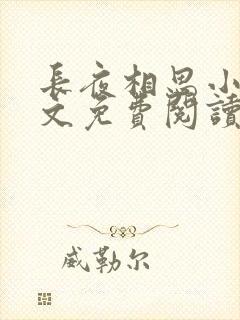 長夜相思小
文免費閱讀
威勒尔